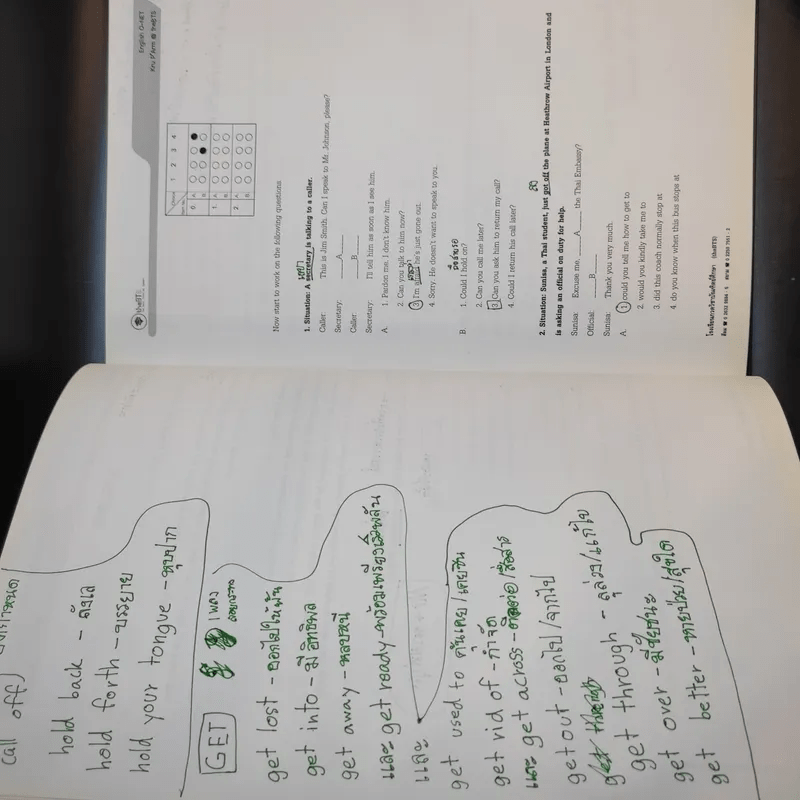 English O-NET
Kru P'Arm @ theBTS
theBTS
1 2 3 4
0 A
B
1. A
B
2 A
B
Now start to work on the following questions.
เลขา
1. Situation: A secretary is talking to a caller.
Caller: This is Jim Smith. Can I speak to Mr. Johnson, please?
Secretary: ____A____
Caller: ____B____
Secretary: I'll tell him as soon as I see him.
A. 1. Pardon me, I don't know him.
2. Can you talk to him now?
3 I'm afraid he's just gone out.
4. Sorry. He doesn't want to speak to you.
ถือสายรอ
B. 1. Could I hold on?
2. Can you call me later?
3 Can you ask him to return my call?
4. Could I return his call later?
ลง
2. Situation: Sunisa, a Thai student, just got off the plane at Heathrow Airport in London and
is asking an official on duty for help.
Sunisa: Excuse me, ____A____ the Thai Embassy?
Official: ____B____
Sunisa: Thank you very much.
A. 1 could you tell me how to get to
2. would you kindly take me to
3. did this coach normally stop at
4. do you know when this bus stops at
call off)
hold back - ลังเล
hold forth - บรรยาย
hold your tongue - หุบปาก
GET
เพลง
get lost - ออกไปให้พ้น
get into - มีอิทธิพล
get away - หลบหนี
และ get ready
และ
get used to คุ้นเคย/เคยชิน
get rid of - กำจัด
และ get across - ติดต่อ/สื่อสาร
get out - ออกไป/จากไป
get through
get through - ลุล่วง/แก้ไข
get over - มีชัยชนะ
get better - หายป่วย/สุขใจ